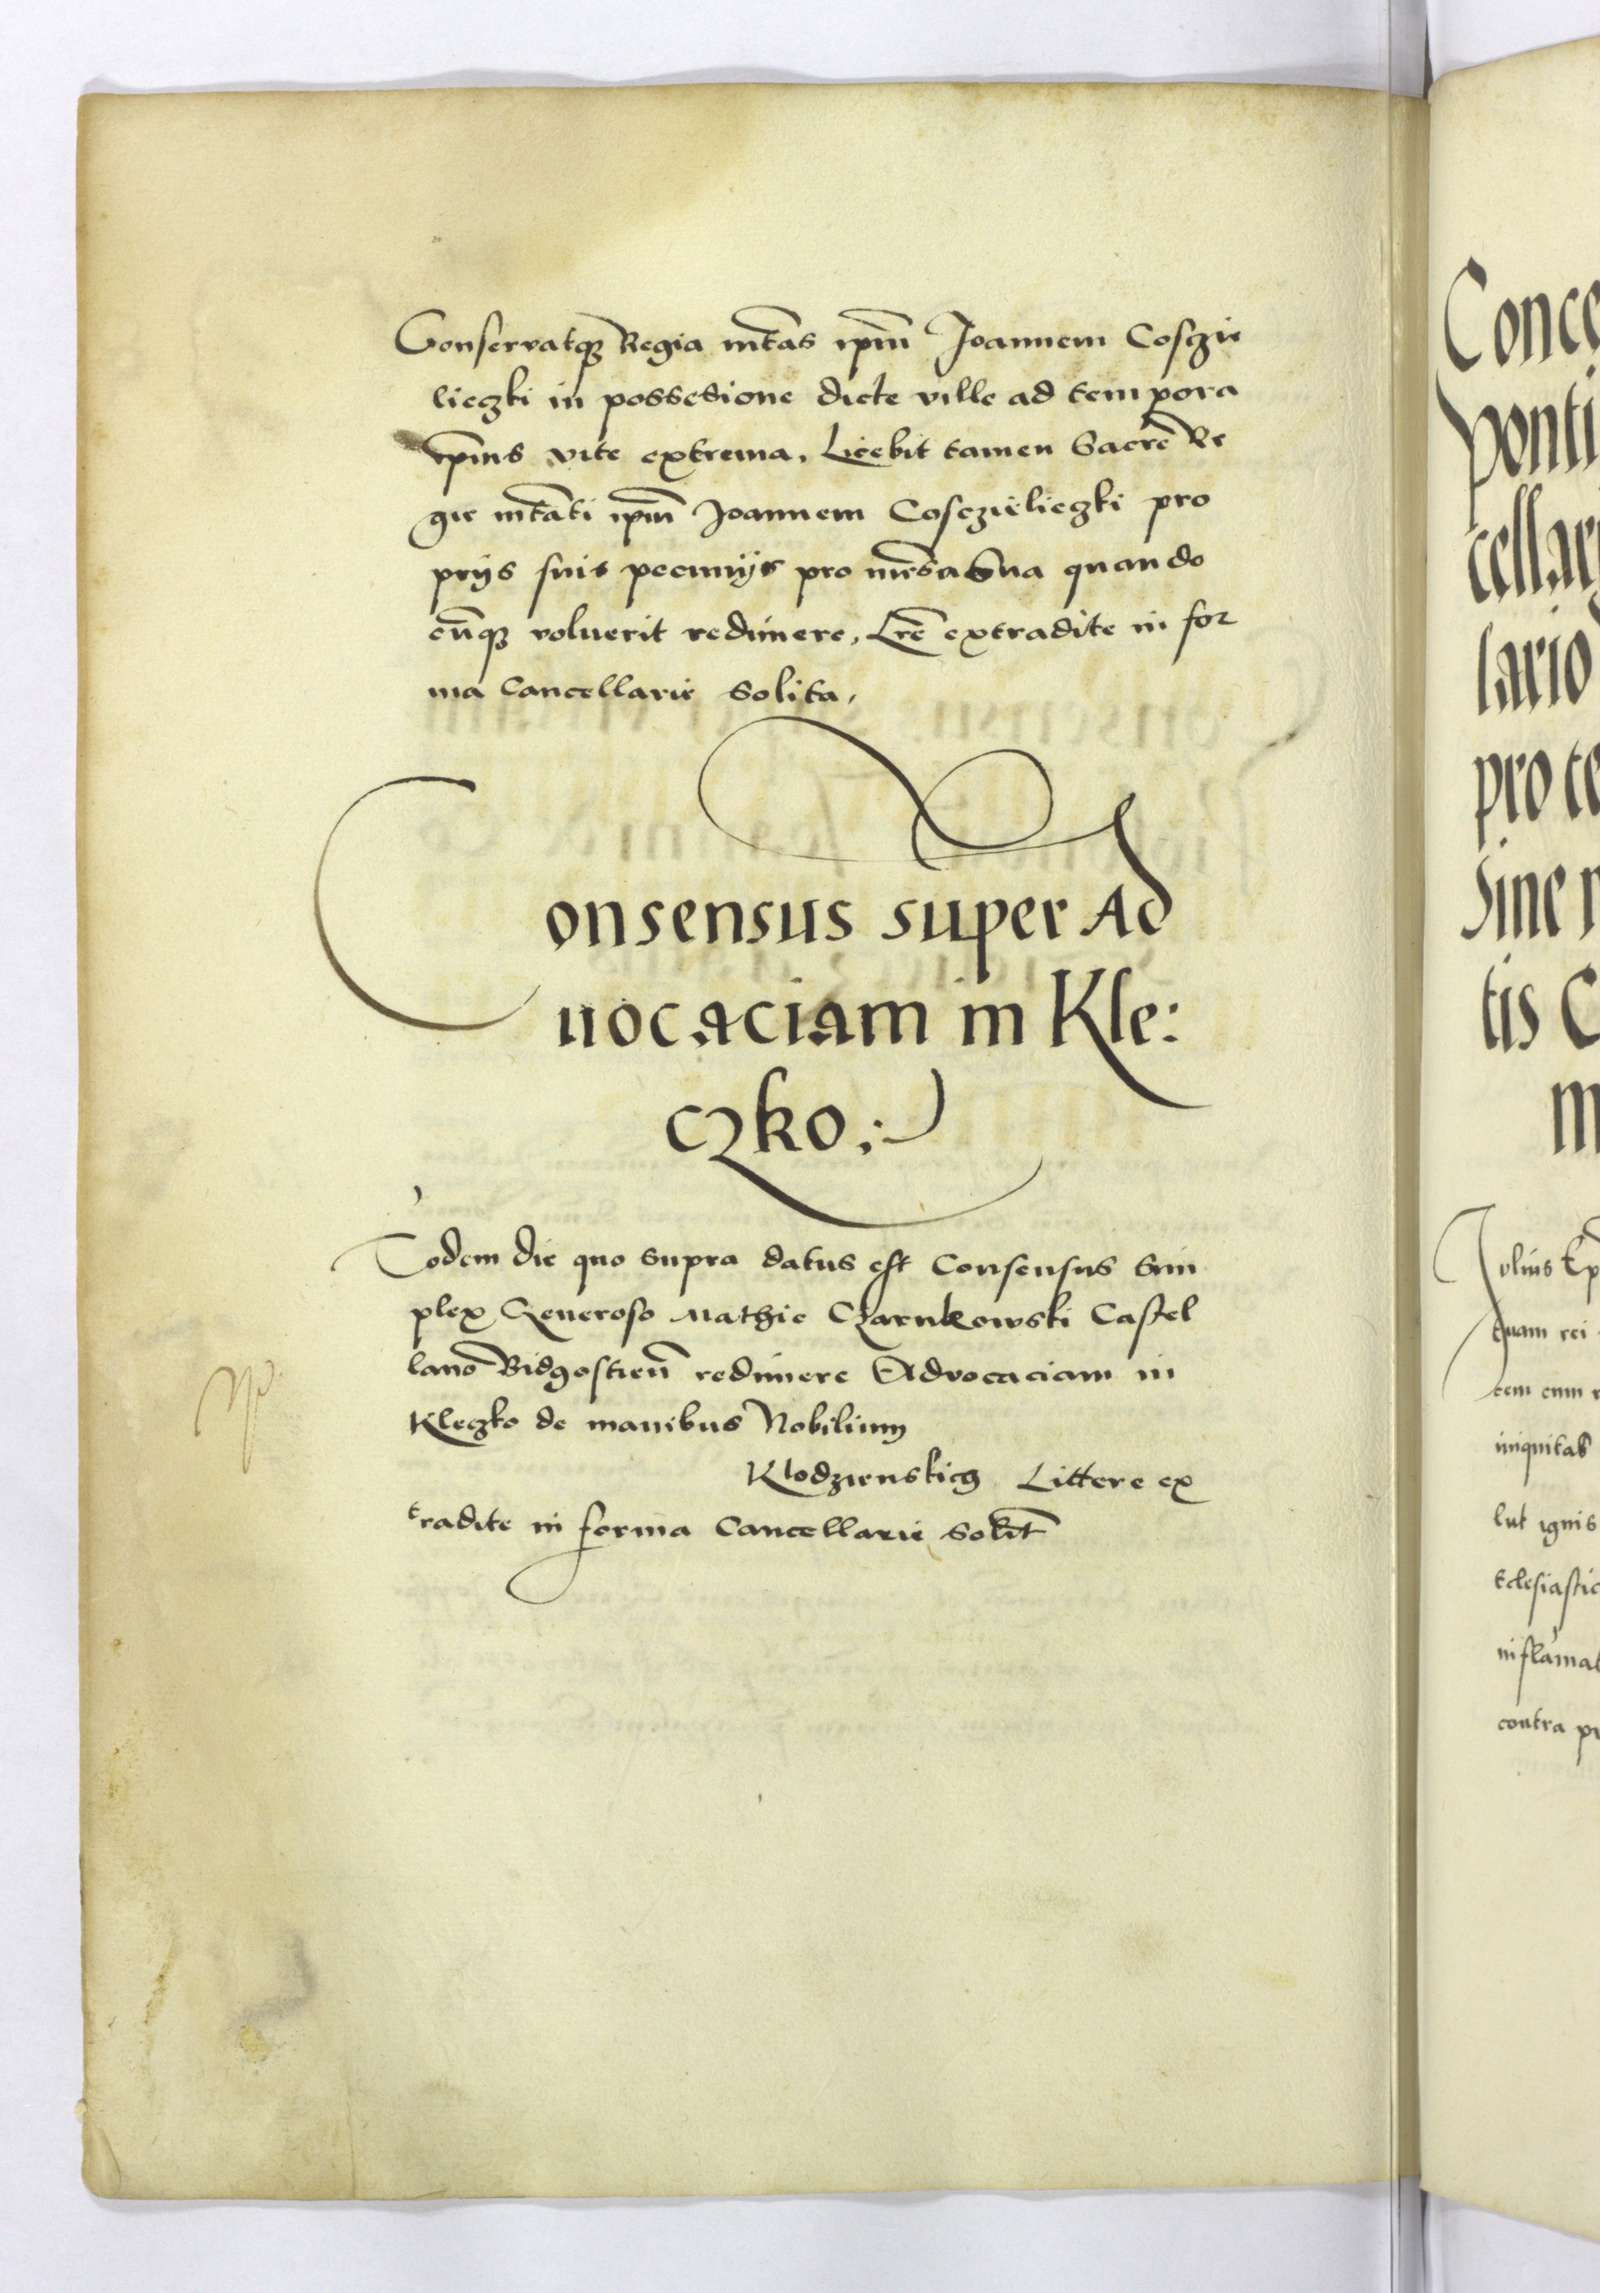 Conservatq₃ Regia mtas ipm̄ Joannem Cosczie
lieczki in possesione dicte ville ad tempora
ipius vite extrema. Licebit tamen Sacrē Re
gie mtati ipm̄ Joannem Cosczieliczki pro
prijs suis pecunijs pro mēsa Sua quando
cūq₃ voluerit redimere, Lrē extradite in for
ma Cancellarie solita,
Consensus super Ad
uocaciam in Kle:
czko:
Eodem die quo supra datus est Consensus Sim
plex Generoso Mathie Czarnkowski Castel
lano Bidgostien̄ redimere Advocaciam in
Kleczko de manibus Nobilium
Klodzienskich Littere ex
tradite in forma Cancellarie Solit̄
Conce
ponti
cellar
lario
pro te
Sine
tis C
m
Julius Ep
quam rei
cem cum
iniquitas
lut ignis
Eclesiastic
inflamat
contra pr